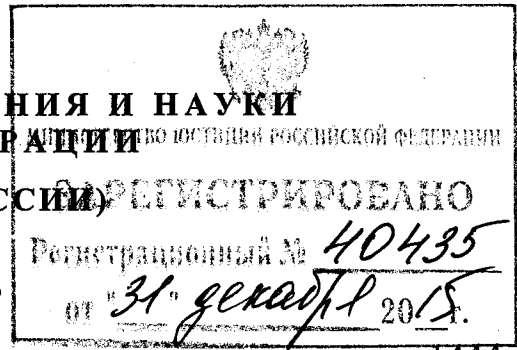 НИЯ И НАУКИ
МИНИСТЕРСТВО ЮСТИЦИИ РОССИЙСКОЙ ФЕДЕРАЦИИ
РАЦИИ
ССИИ)
ЗАРЕГИСТРИРОВАНО
Регистрационный № 40435
от "31" декабря 2015г.